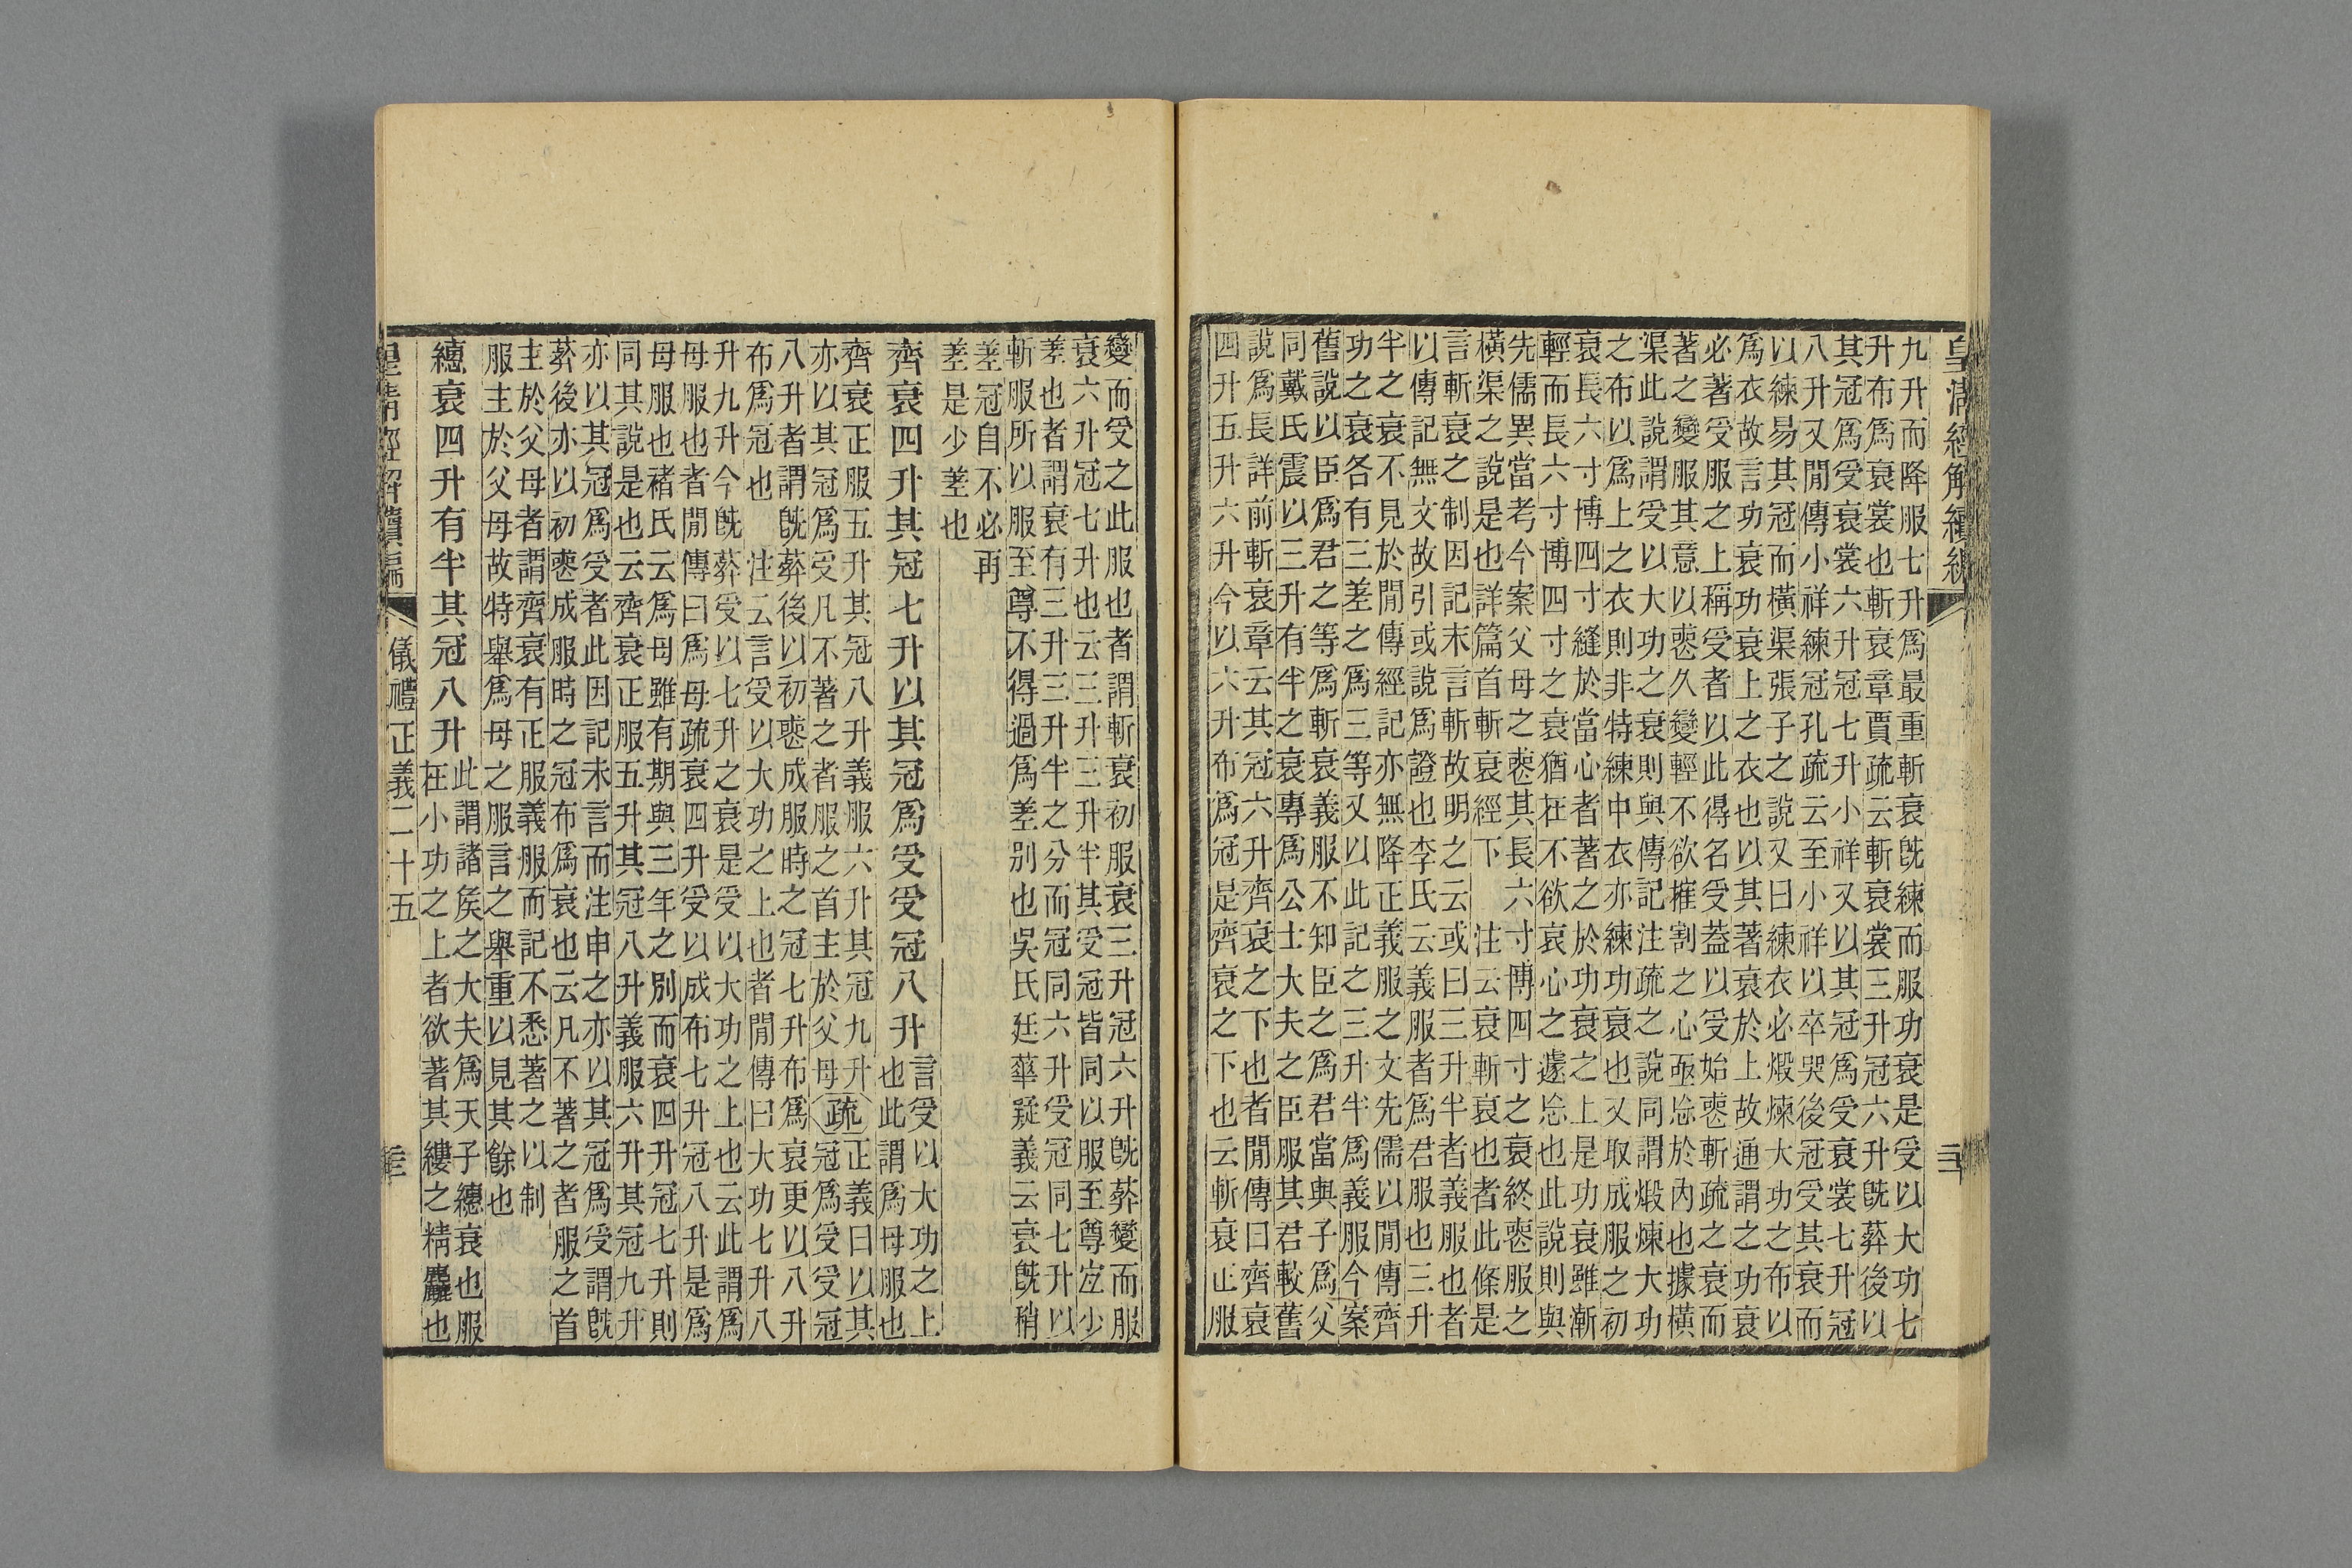 皇清經解續編
九升而降服七升爲最重斬衰旣練而服功衰是受以大功七
升布爲衰裳也斬衰章賈疏云斬衰裳三升冠六升旣葬後以
其冠爲受衰裳六升冠七升小祥又以其冠爲受衰裳七升冠
八升又閒傳小祥練冠孔疏云至小祥以卒哭後冠受其衰而
以練易其冠而橫渠張子之說又曰練衣必煅煉大功之布以
爲衣故言功衰功衰上之衣也以其著衰於上故通謂之功衰
必著受服之上稱受者以此得名受葢以受始喪斬疏之衰而
著之變服其意以喪久變輕不欲摧割之心亟忘於內也據橫
渠此說謂受以大功之衰則與傳記注疏之說同謂煅煉大功
之布以爲上之衣則非特練中衣亦練功衰也又取成服之初
衰長六寸博四寸縫於當心者著之於功衰之上是功衰雖漸
輕而長六寸博四寸之衰猶在不欲哀心之遽忘也此說則與
先儒異當考今案父母之喪其長六寸博四寸之衰終喪服之
橫渠之說是也詳篇首斬衰絰下　注云衰斬衰也者此條是
言斬衰之制因記末言斬故明之云或曰三升半者義服也者
以傳記無文故引或說爲證也李氏云義服者爲君服也三升
半之衰不見於閒傳經記亦無降正義服之文先儒以閒傳齊
功之衰各有三差之爲三等又以此記之三升半爲義服今案
舊說以臣爲君之等爲斬衰義服不知臣之爲君當與子爲父
同戴氏震以三升有半之衰專爲公士大夫之臣服其君較舊
說爲長詳前斬衰章云其冠六升齊衰之下也者閒傳曰齊衰
四升五升六升今以六升布爲冠是齊衰之下也云斬衰正服
變而受之此服也者謂斬衰初服衰三升冠六升旣葬變而服
衰六升冠七升也云三升三升半其受冠皆同以服至尊宜少
差也者謂衰有三升三升半之分而冠同六升受冠同七升以
斬服所以服至尊不得過爲差別也吳氏廷華疑義云衰旣稍
差冠自不必再
差是少差也
齊衰四升其冠七升以其冠爲受受冠八升
言受以大功之上
也此謂爲母服也
齊衰正服五升其冠八升義服六升其冠九升疏正義曰以其
亦以其冠爲受凡不著之者服之首主於父母冠爲受受冠
八升者謂旣葬後以初喪成服時之冠七升布爲衰更以八升
布爲冠也　注云言受以大功之上也者閒傳曰大功七升八
升九升今旣葬受以七升之衰是受以大功之上也云此謂爲
母服也者閒傳曰爲母疏衰四升受以成布七升冠八升是爲
母服也褚氏云爲母雖有期與三年之別而衰四升冠七升則
同其說是也云齊衰正服五升其冠八升義服六升其冠九升
亦以其冠爲受者此因記未言而注申之亦以其冠爲受謂旣
葬後亦以初喪成服時之冠布爲衰也云凡不著之者服之首
主於父母者謂齊衰有正服義服而記不悉著之以制
服主於父母故特舉爲母之服言之舉重以見其餘也
繐衰四升有半其冠八升
此謂諸侯之大夫爲天子繐衰也服
在小功之上者欲著其縷之精麤也
皇清經解續編
儀禮正義二十五